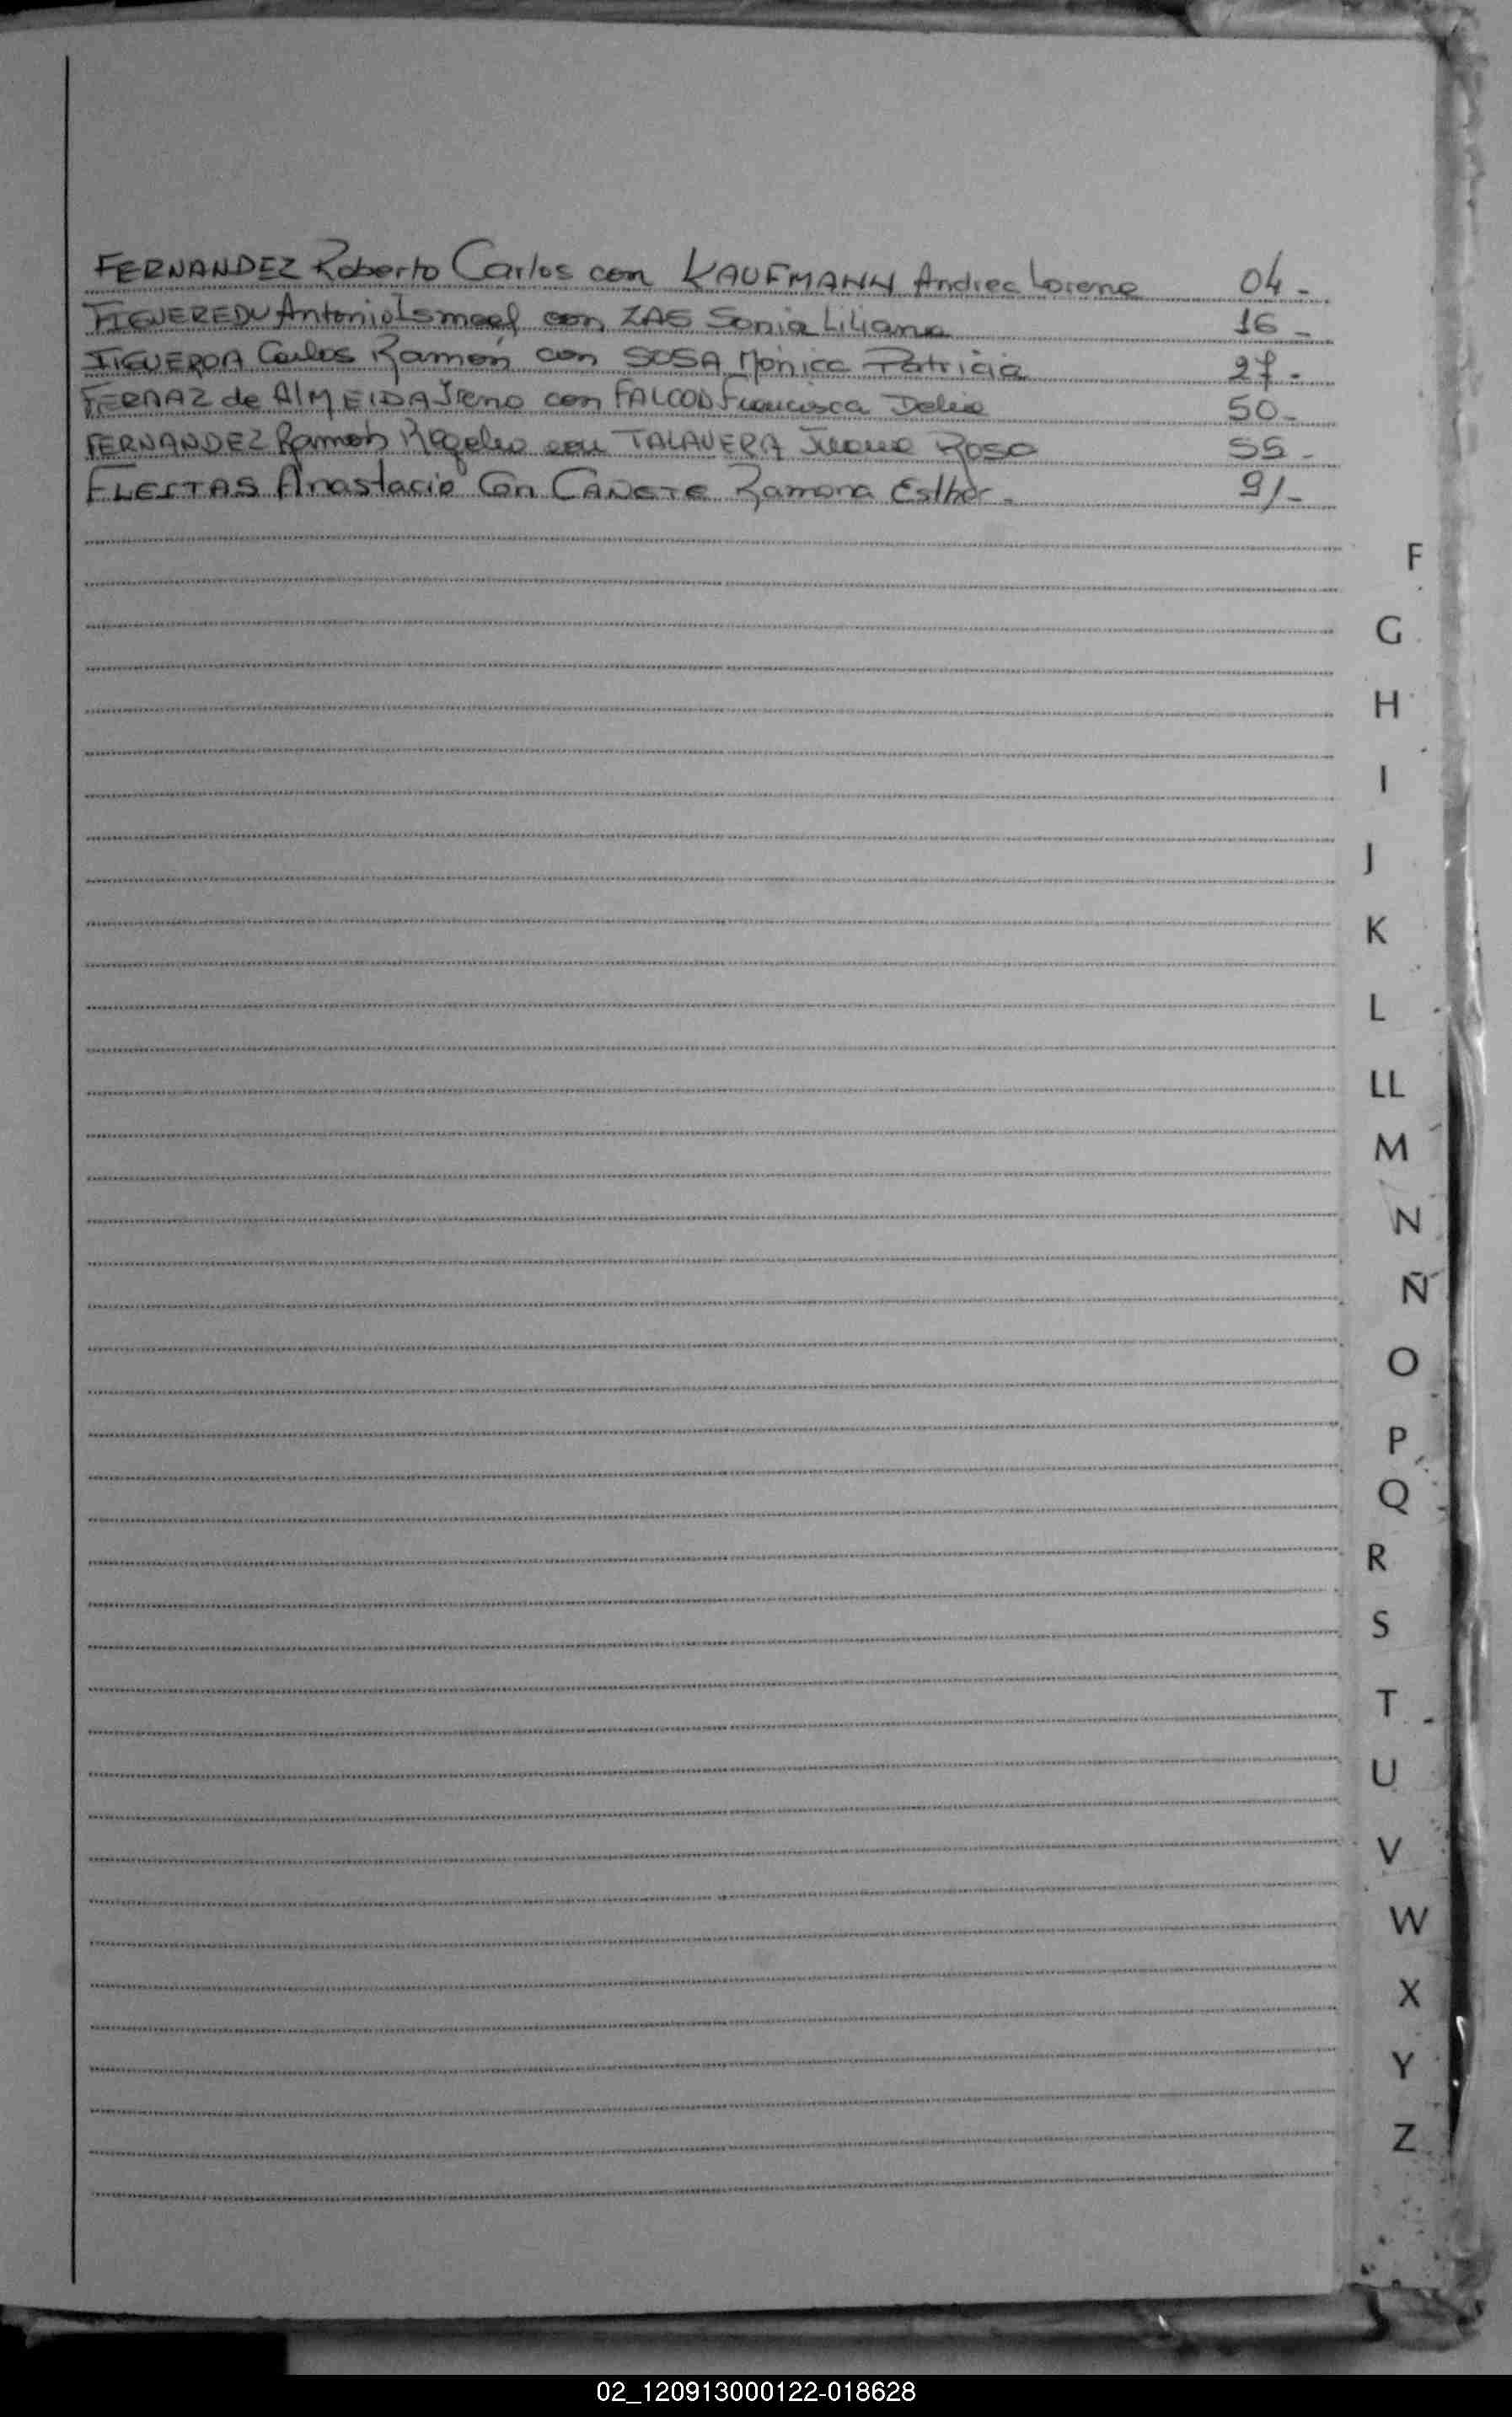 FERNANDEZ Roberto Carlos con KAUFMANN Andrea Lorena 04-
FIGUEREDO Antonio Ismael con ZAS Sonia Liliana 16-
FIGUEROA Carlos Ramón con SOSA Mónica Patricia 27-
FERRAZ de AlMEIDA Ireno con FALCON Francisca Delia 50-
FERNANDEZ Ramón Rogelio con TALAVERA Juana Rosa 55-
FLEITAS Anastacio Con CAÑETE Ramona Esther- 91-
F
G
H
I
J
K
L
LL
M
N
Ñ
O
P
Q
R
S
T
U
V
W
X
Y
Z
02_120913000122-018628